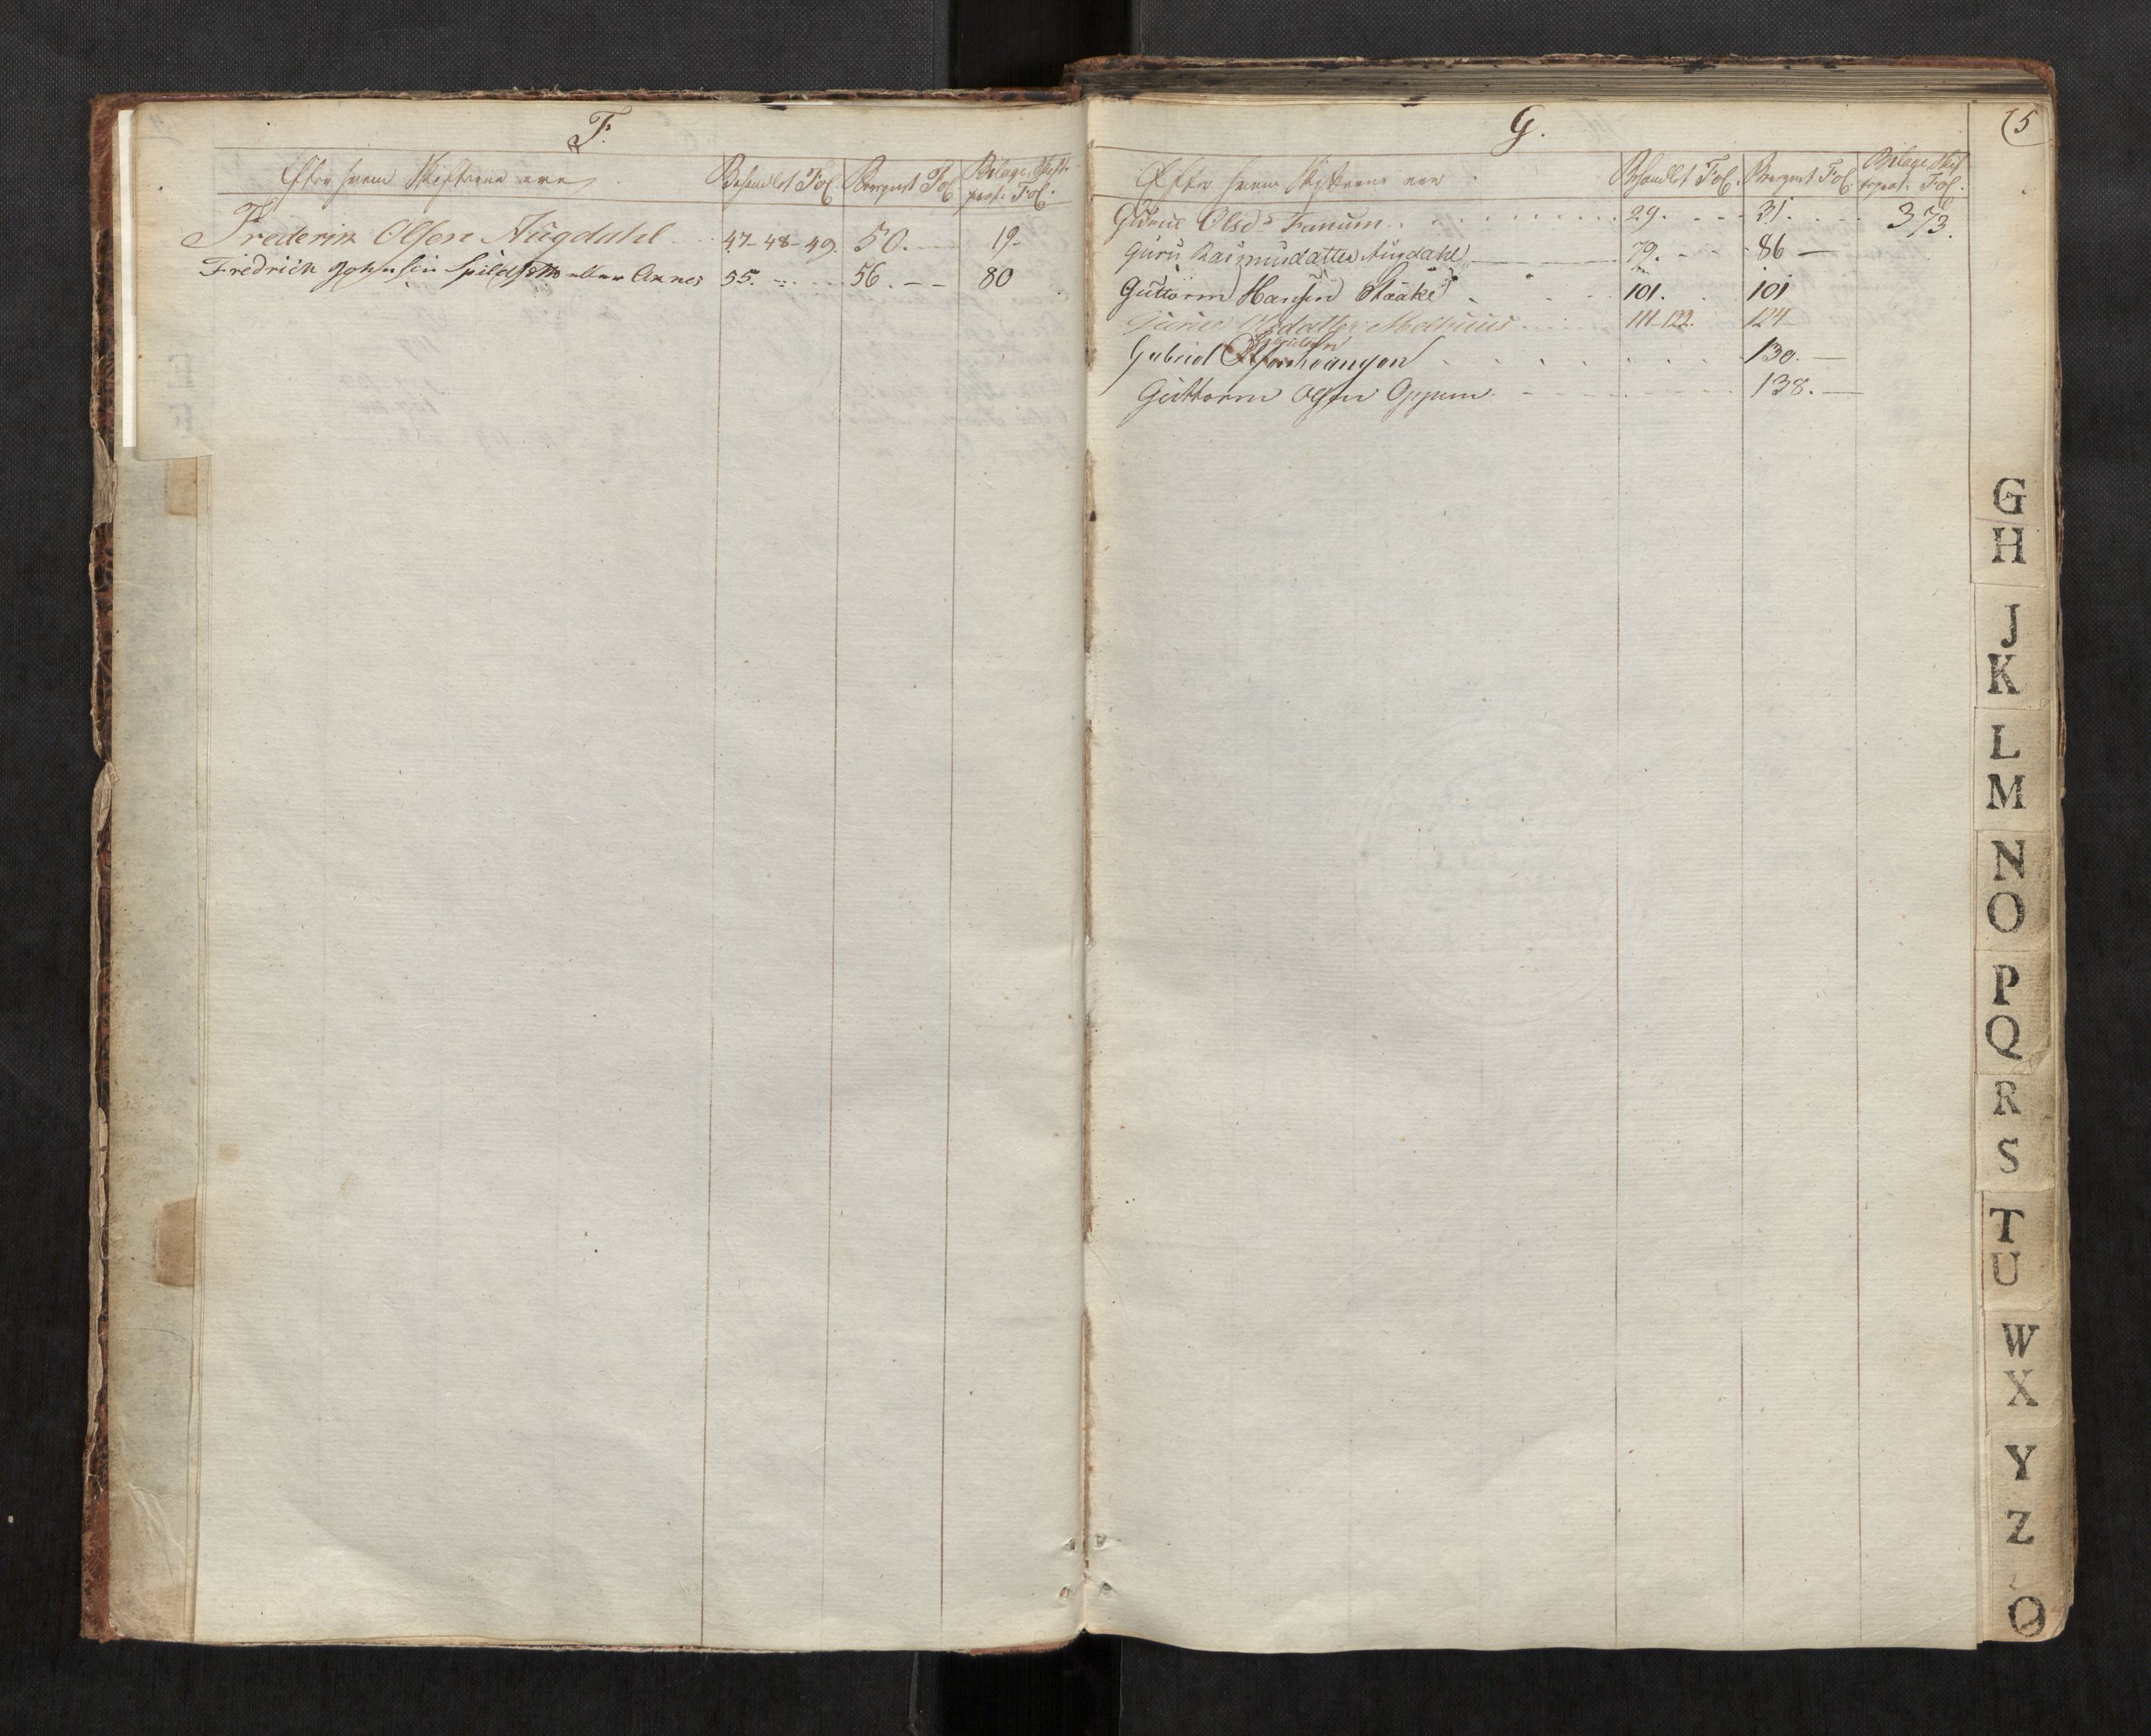 F.
Efter hvem Skifterne ere
Behandlet Fol. Beregnet Fol. Bilage Skift-
prot. Fol.
Frederik Olsen Augdahl 47-48-49. 50. 19-
Fridrich Johnsen eller Annes 55. 56. 80
G.
5
Efter hvem Skifterne ere
Behandlet Fol. Beregnet Fol. Bilage Skift
prot. Fol.
Olsd: Fanum 29. 31. 373.
Guru Rasmusdatter Augdahl 79. 86
Guttorm Hansen Staake 101. 101
111-122. 124
Gabriel 130.
Guttorm Olsen Oppem 138.
G
H
J
K
L
M
N
O
P
Q
R
S
T
U
W
X
Y
Z
Ø